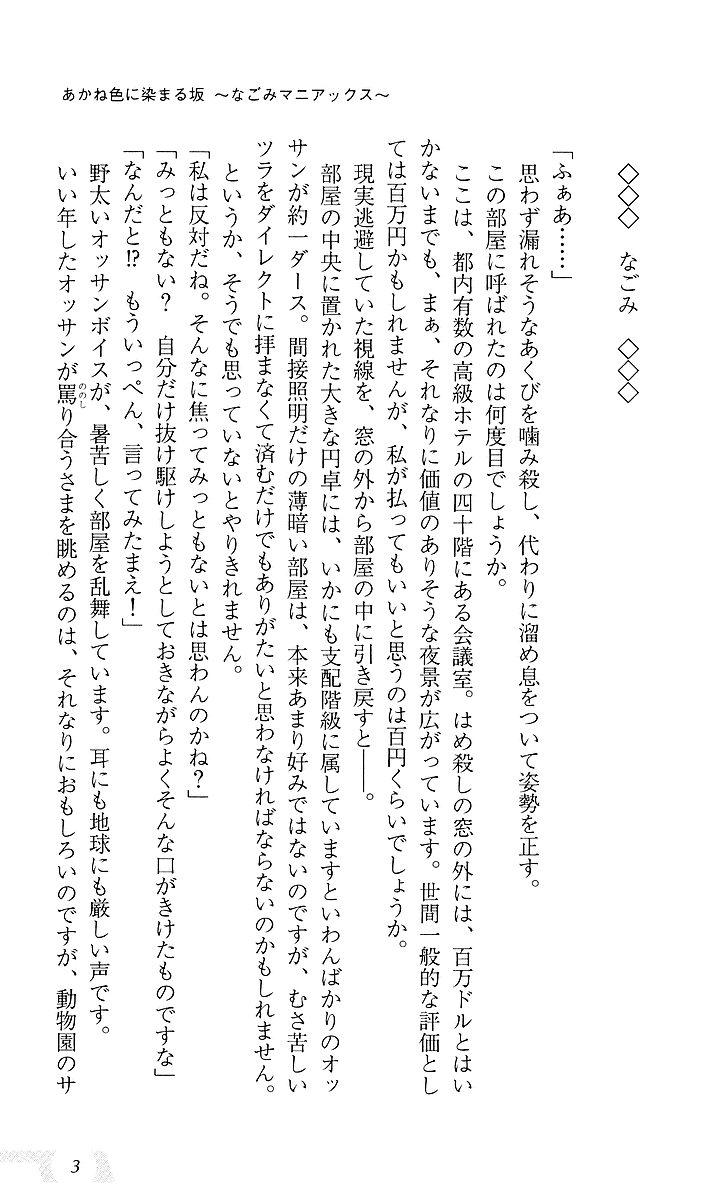 あかね色に染まる坂 ～なごみマニアックス～
◇◇◇ なごみ ◇◇◇
「ふぁあ……」
思わず漏れそうなあくびを噛み殺し、代わりに溜め息をついて姿勢を正す。
この部屋に呼ばれたのは何度目でしょうか。
ここは、都内有数の高級ホテルの四十階にある会議室。はめ殺しの窓の外には、百万ドルとはい
かないまでも、まぁ、それなりに価値のありそうな夜景が広がっています。世間一般的な評価とし
ては百万円かもしれませんが、私が払ってもいいと思うのは百円くらいでしょうか。
現実逃避していた視線を、窓の外から部屋の中に引き戻すと――。
部屋の中央に置かれた大きな円卓には、いかにも支配階級に属していますといわんばかりのオッ
サンが約一ダース。間接照明だけの薄暗い部屋は、本来あまり好みではないのですが、むさ苦しい
ツラをダイレクトに拝まなくて済むだけでもありがたいと思わなければならないのかもしれません。
というか、そうでも思っていないとやりきれません。
「私は反対だね。そんなに焦ってみっともないとは思わんのかね？」
「みっともない？　自分だけ抜け駆けしようとしておきながらよくそんな口がきけたものですな」
「なんだと!?　もういっぺん、言ってみたまえ！」
野太いオッサンボイスが、暑苦しく部屋を乱舞しています。耳にも地球にも厳しい声です。
いい年したオッサンが罵り合うさまを眺めるのは、それなりにおもしろいのですが、動物園のサ
ののし
3